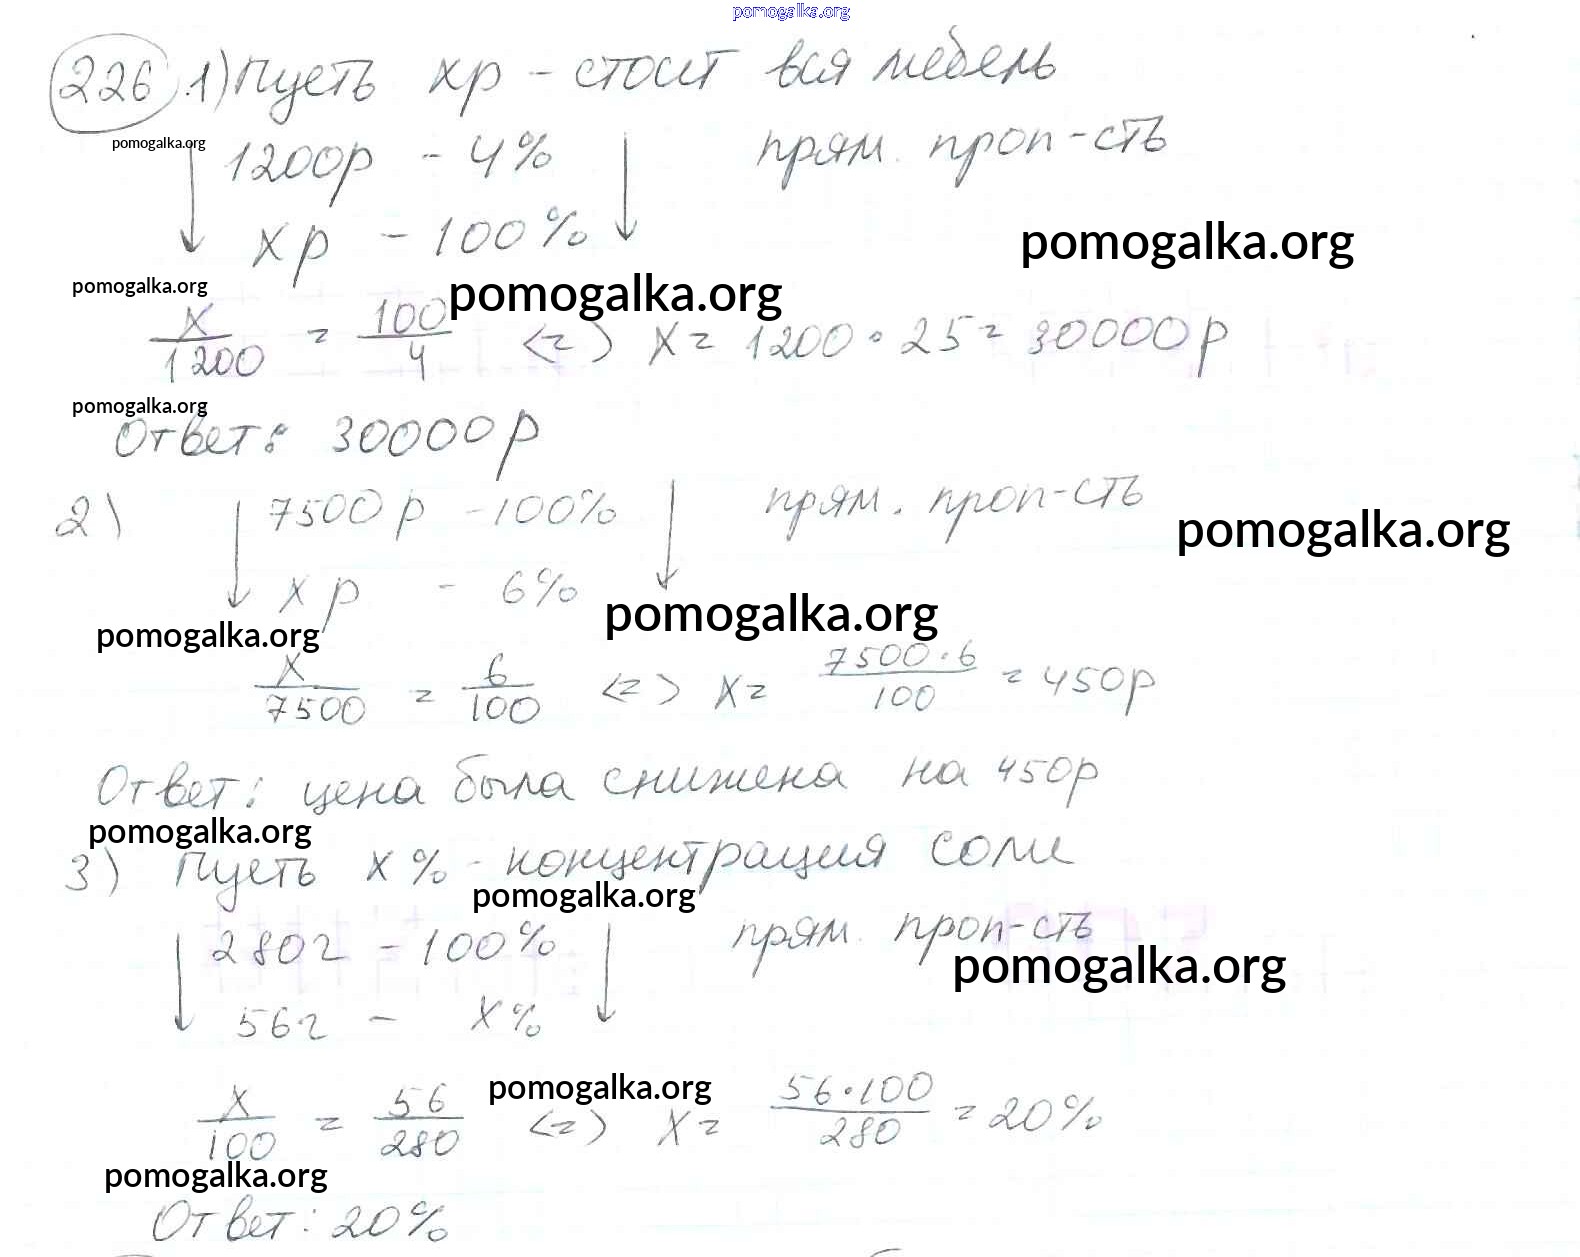 pomogalka.org
226 1) Пусть xр - стоит вся мебель
pomogalka.org
1200р - 4% прям. проп-сть
xр - 100%
pomogalka.org
pomogalka.org pomogalka.org
x/1200 = 100/4 <=> x = 1200 • 25 = 30000р
pomogalka.org
Ответ: 30000р
2) 7500р - 100% прям. проп-сть
pomogalka.org
xр - 6%
pomogalka.org pomogalka.org
x/7500 = 6/100 <=> x = 7500•6/100 = 450р
Ответ: цена была снижена на 450р
pomogalka.org
3) Пусть x% - концентрация соли
pomogalka.org
280г - 100% прям. проп-сть
pomogalka.org
56г - x%
pomogalka.org
x/100 = 56/280 <=> x = 56•100/280 = 20%
pomogalka.org
Ответ: 20%